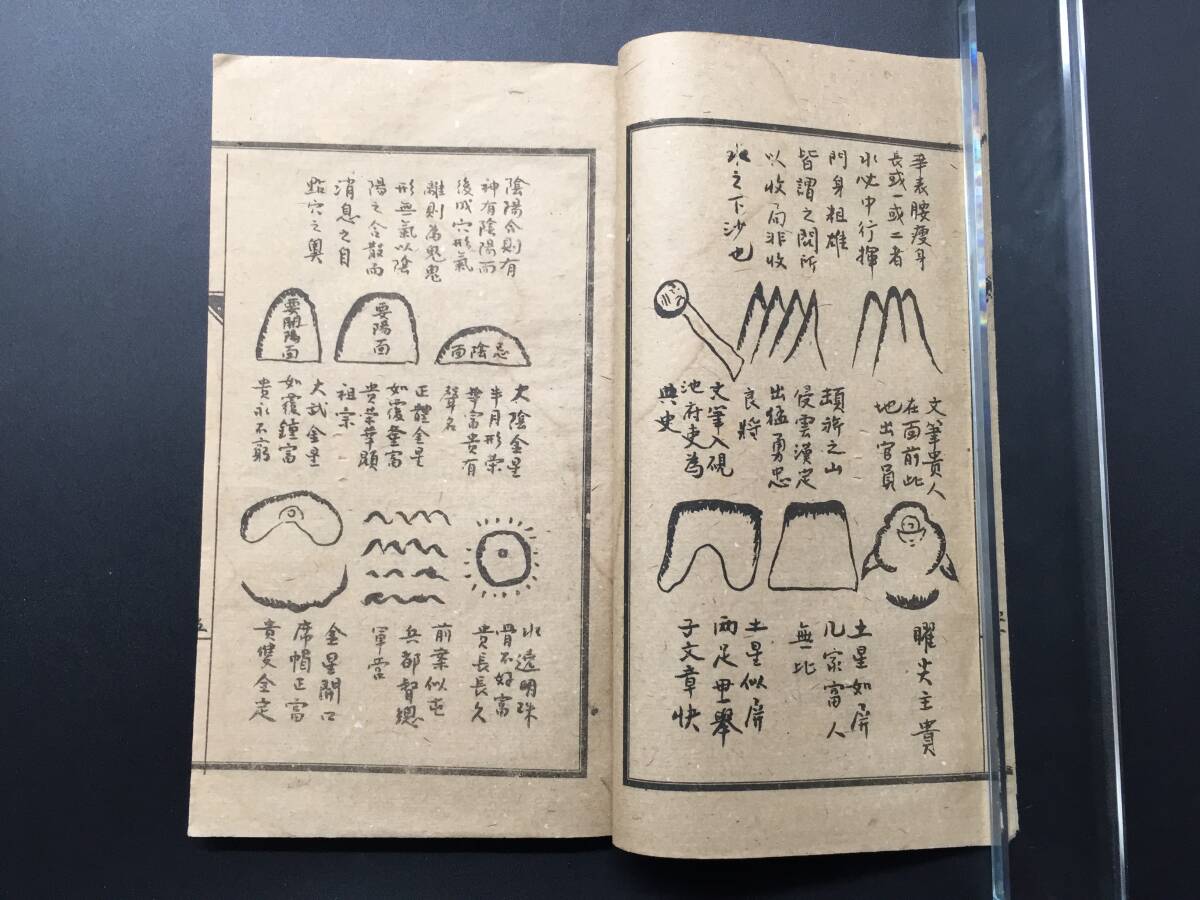 華表腰瘦身
長或一或二者
水必中行捍
門身粗雄
皆謂之關所
以收局非收
水之下沙也
文筆貴人
在面前此
地出官員
顛祈之山
侵雲漢定
出猛勇忠
良將
文筆入硯
池府吏為
典史
曜尖主貴
土星如屏
几家富人
無比
土星似屏
兩足垂舉
子文章快
陰陽合則有
神有陰陽而
後成穴形氣
離則為鬼鬼
形無氣以陰
陽之合散而
消息之自
點穴之奧
忌陰面
要陽面
要開陽面
太陰金星
半月形榮
華富貴有
聲名
正體金星
如覆釜富
貴榮華顯
祖宗
太武金星
如覆鐘富
貴永不窮
水遶明珠
骨不好富
貴長長久
前案似屯
兵部督總
軍營
金星開口
席帽正富
貴雙全定
五